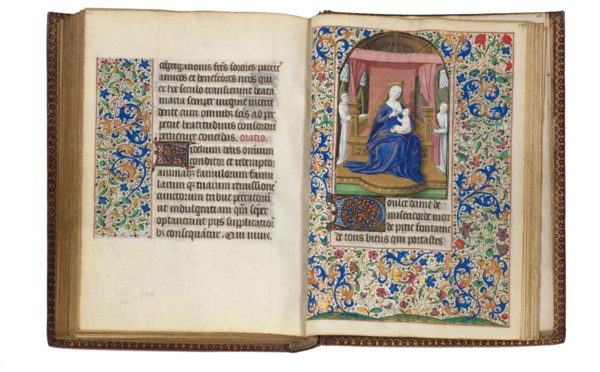 cōgregationis fr̄es sorores
amicos et benefcōres nr̄os qui
ex hoc seculo transierunt beata
maria semper uirgine interce
dente cum omnibꝫ scīs ad per
petue beatitudinis consortiū
peruenire concedas. oratio.
Fidelium deus omnium
conditor et redemptor
animabꝫ famulorum famu
larum qꝫ tuarum remissionē
cunctorum tribue peccatorū
ut indulgentiam quā semper
optauerunt pijs supplicatio
bꝫ consequātur. Qui uiuis.
Doulce dame de
misericorde mere
de pitie fontaine
de tous biens qui portastes